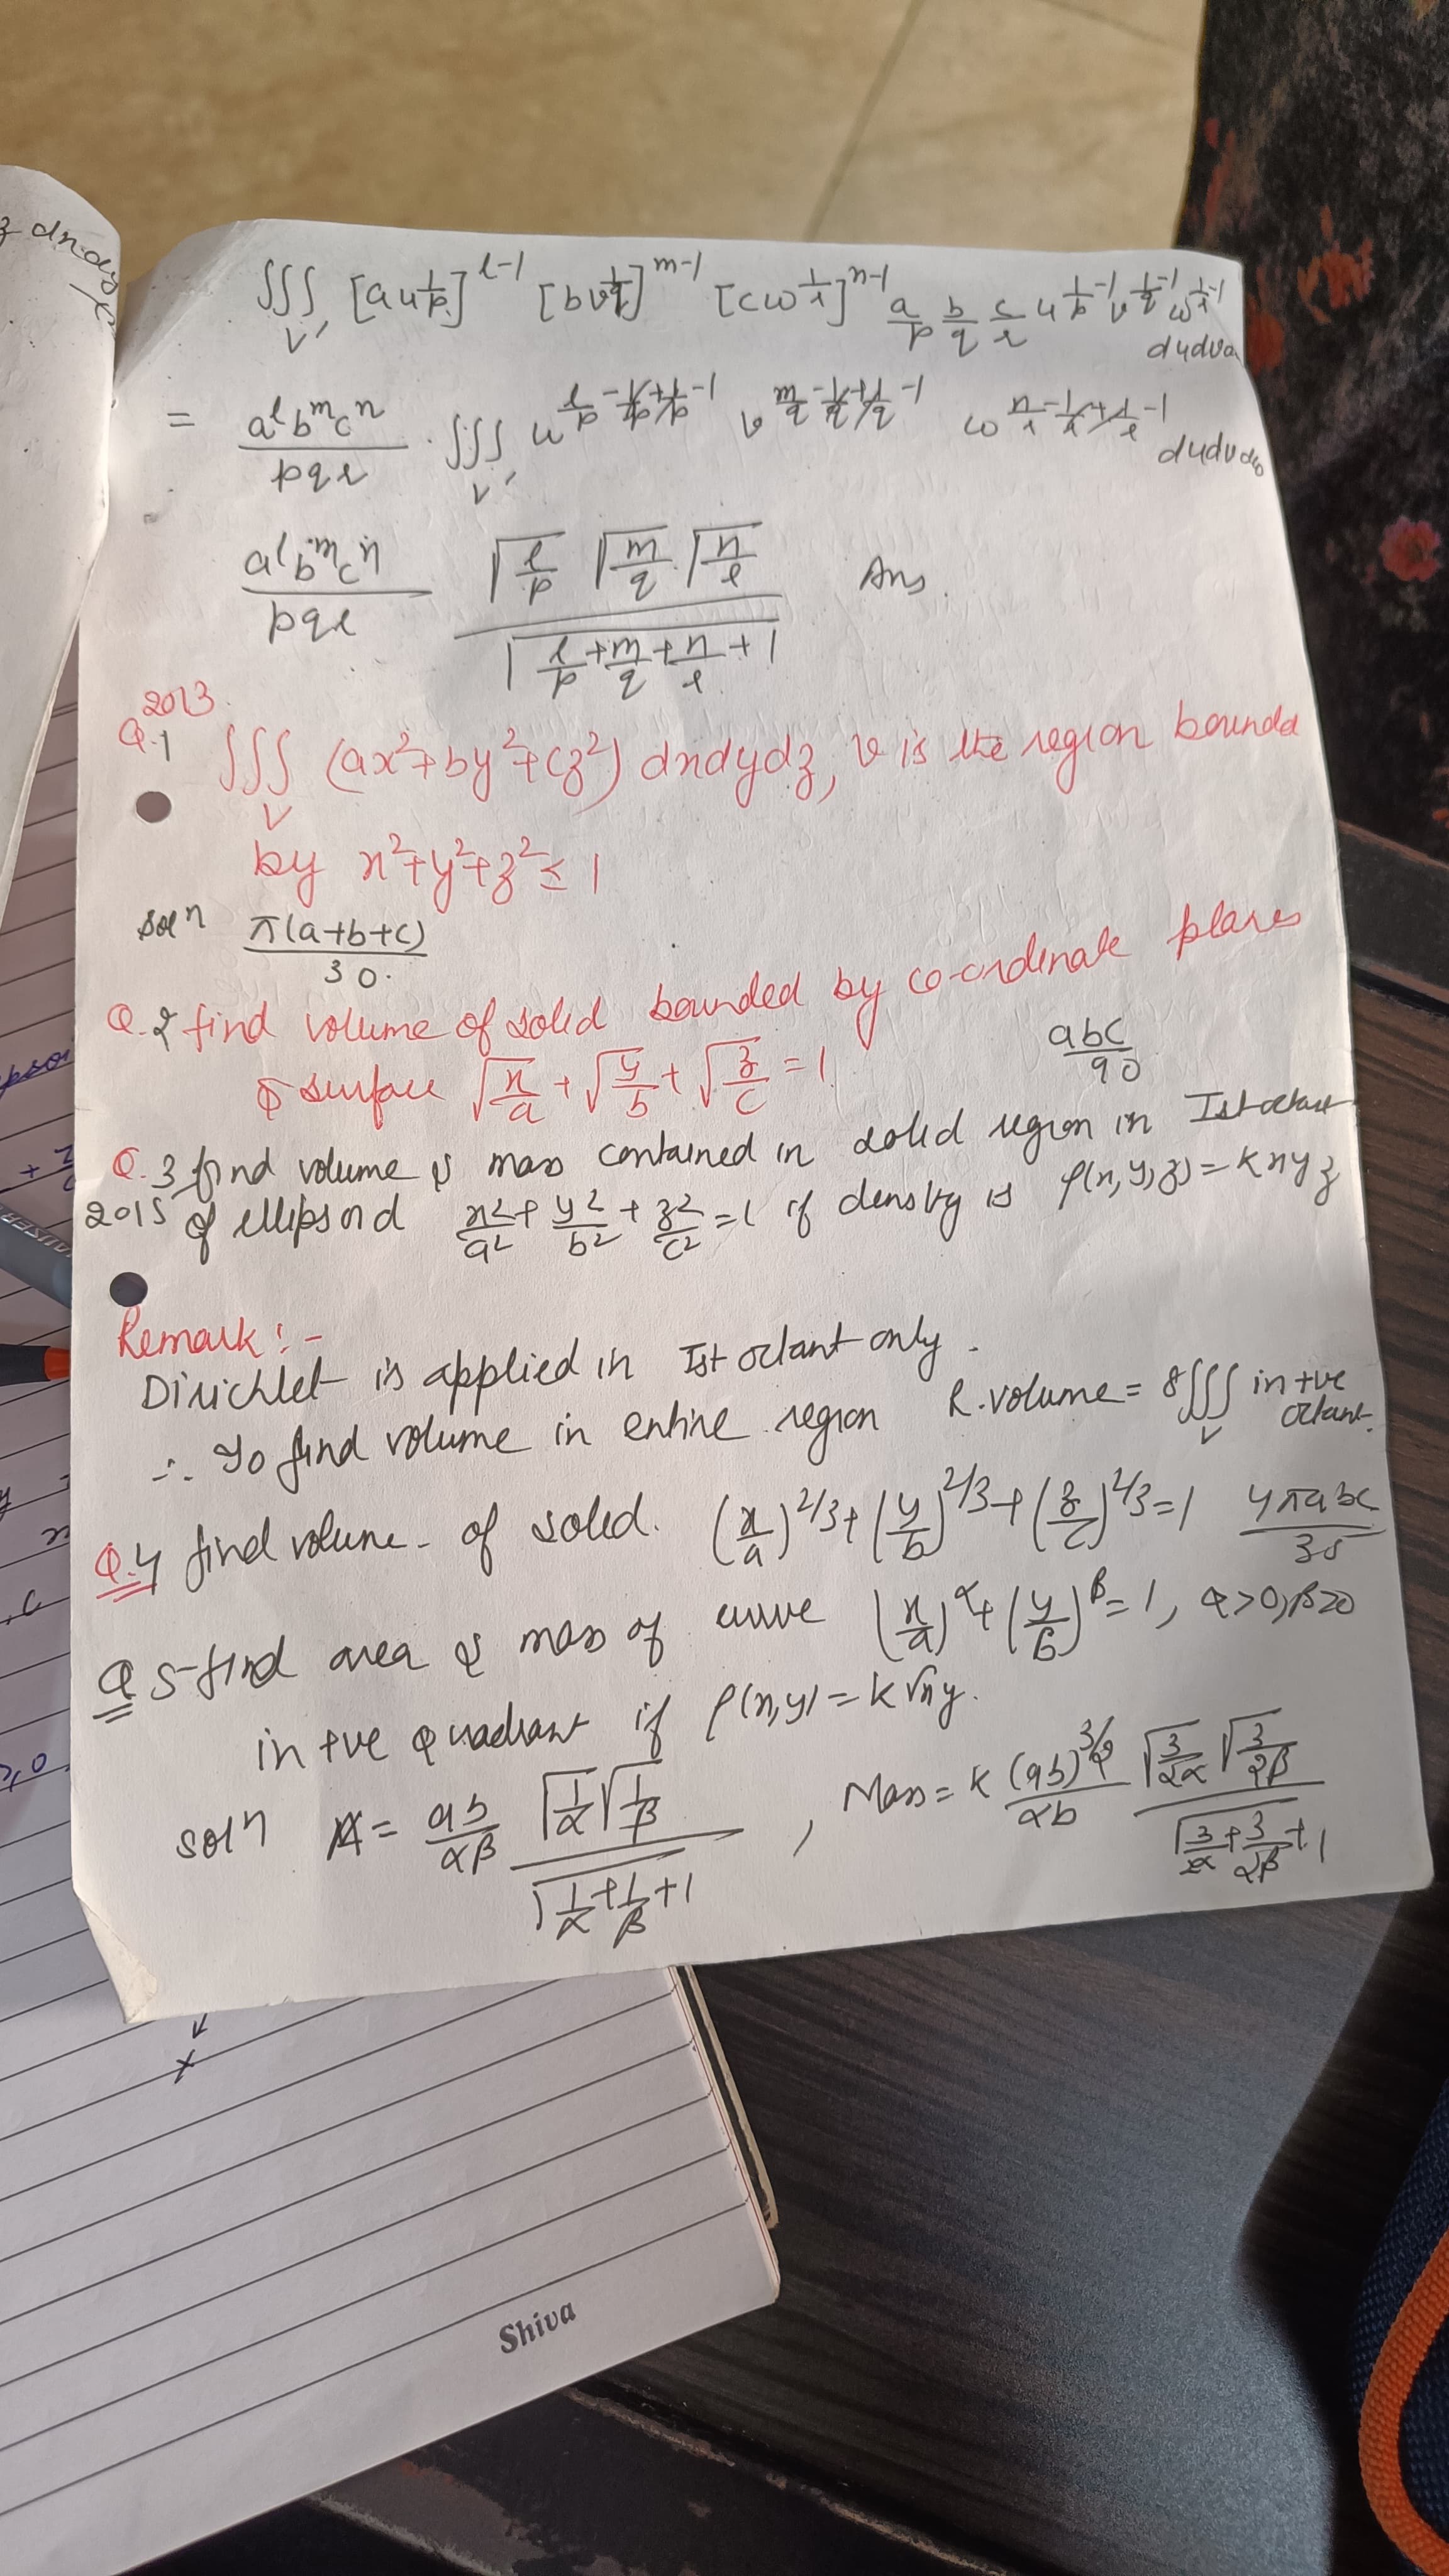 z dxdy
∭_V' [a u^(1/p)]^(l-1) [b v^(1/q)]^(m-1) [c w^(1/r)]^(n-1) a/p b/q c/r u^(1/p -1) v^(1/q -1) w^(1/r -1)
dudvd
= a^l b^m c^n / pqr · ∭_V' u^(l/p - 1/p + 1/p - 1) v^(m/q - 1/q + 1/q - 1) w^(n/r - 1/r + 1/r - 1)
dudvdw
a^l b^m c^n / pqr  Γ(l/p) Γ(m/q) . Γ(n/r) / Γ(l/p + m/q + n/r + 1)  Ans.
2013
Q.1 ∭_V (ax²+by²+cz²) dxdydz, v is the region bounde
by x²+y²+z² ≤ 1
Solⁿ π(a+b+c)/30.
Q.2 find volume of solid bounded by co-ordinate planes
& surface √(x/a) + √(y/b) + √(z/c) = 1  abc/90
Q.3 find volume & mass contained in solid region in Ist octant
2015 of ellipsoid x²/a² + y²/b² + z²/c² = 1 if density is ρ(x,y,z) = kxyz
Remark :-
Dirichlet is applied in Ist octant only.
∴ To find volume in entire region R. volume = 8∭_V in +ve
octant.
Q.4 find volume of solid. (x/a)^(2/3) + (y/b)^(2/3) + (z/c)^(2/3) = 1  4πabc/35
Q 5 find area & mass of curve (x/a)^α + (y/b)^β = 1, α>0, β>0
in +ve quadrant if ρ(x,y) = k√xy.
Solⁿ A = ab/αβ Γ(1/α) Γ(1/β) / Γ(1/α + 1/β + 1) , Mass = k (ab)^(3/2) / αb Γ(3/2α) Γ(3/2β) / Γ(3/2α + 3/2β + 1)
Shiva